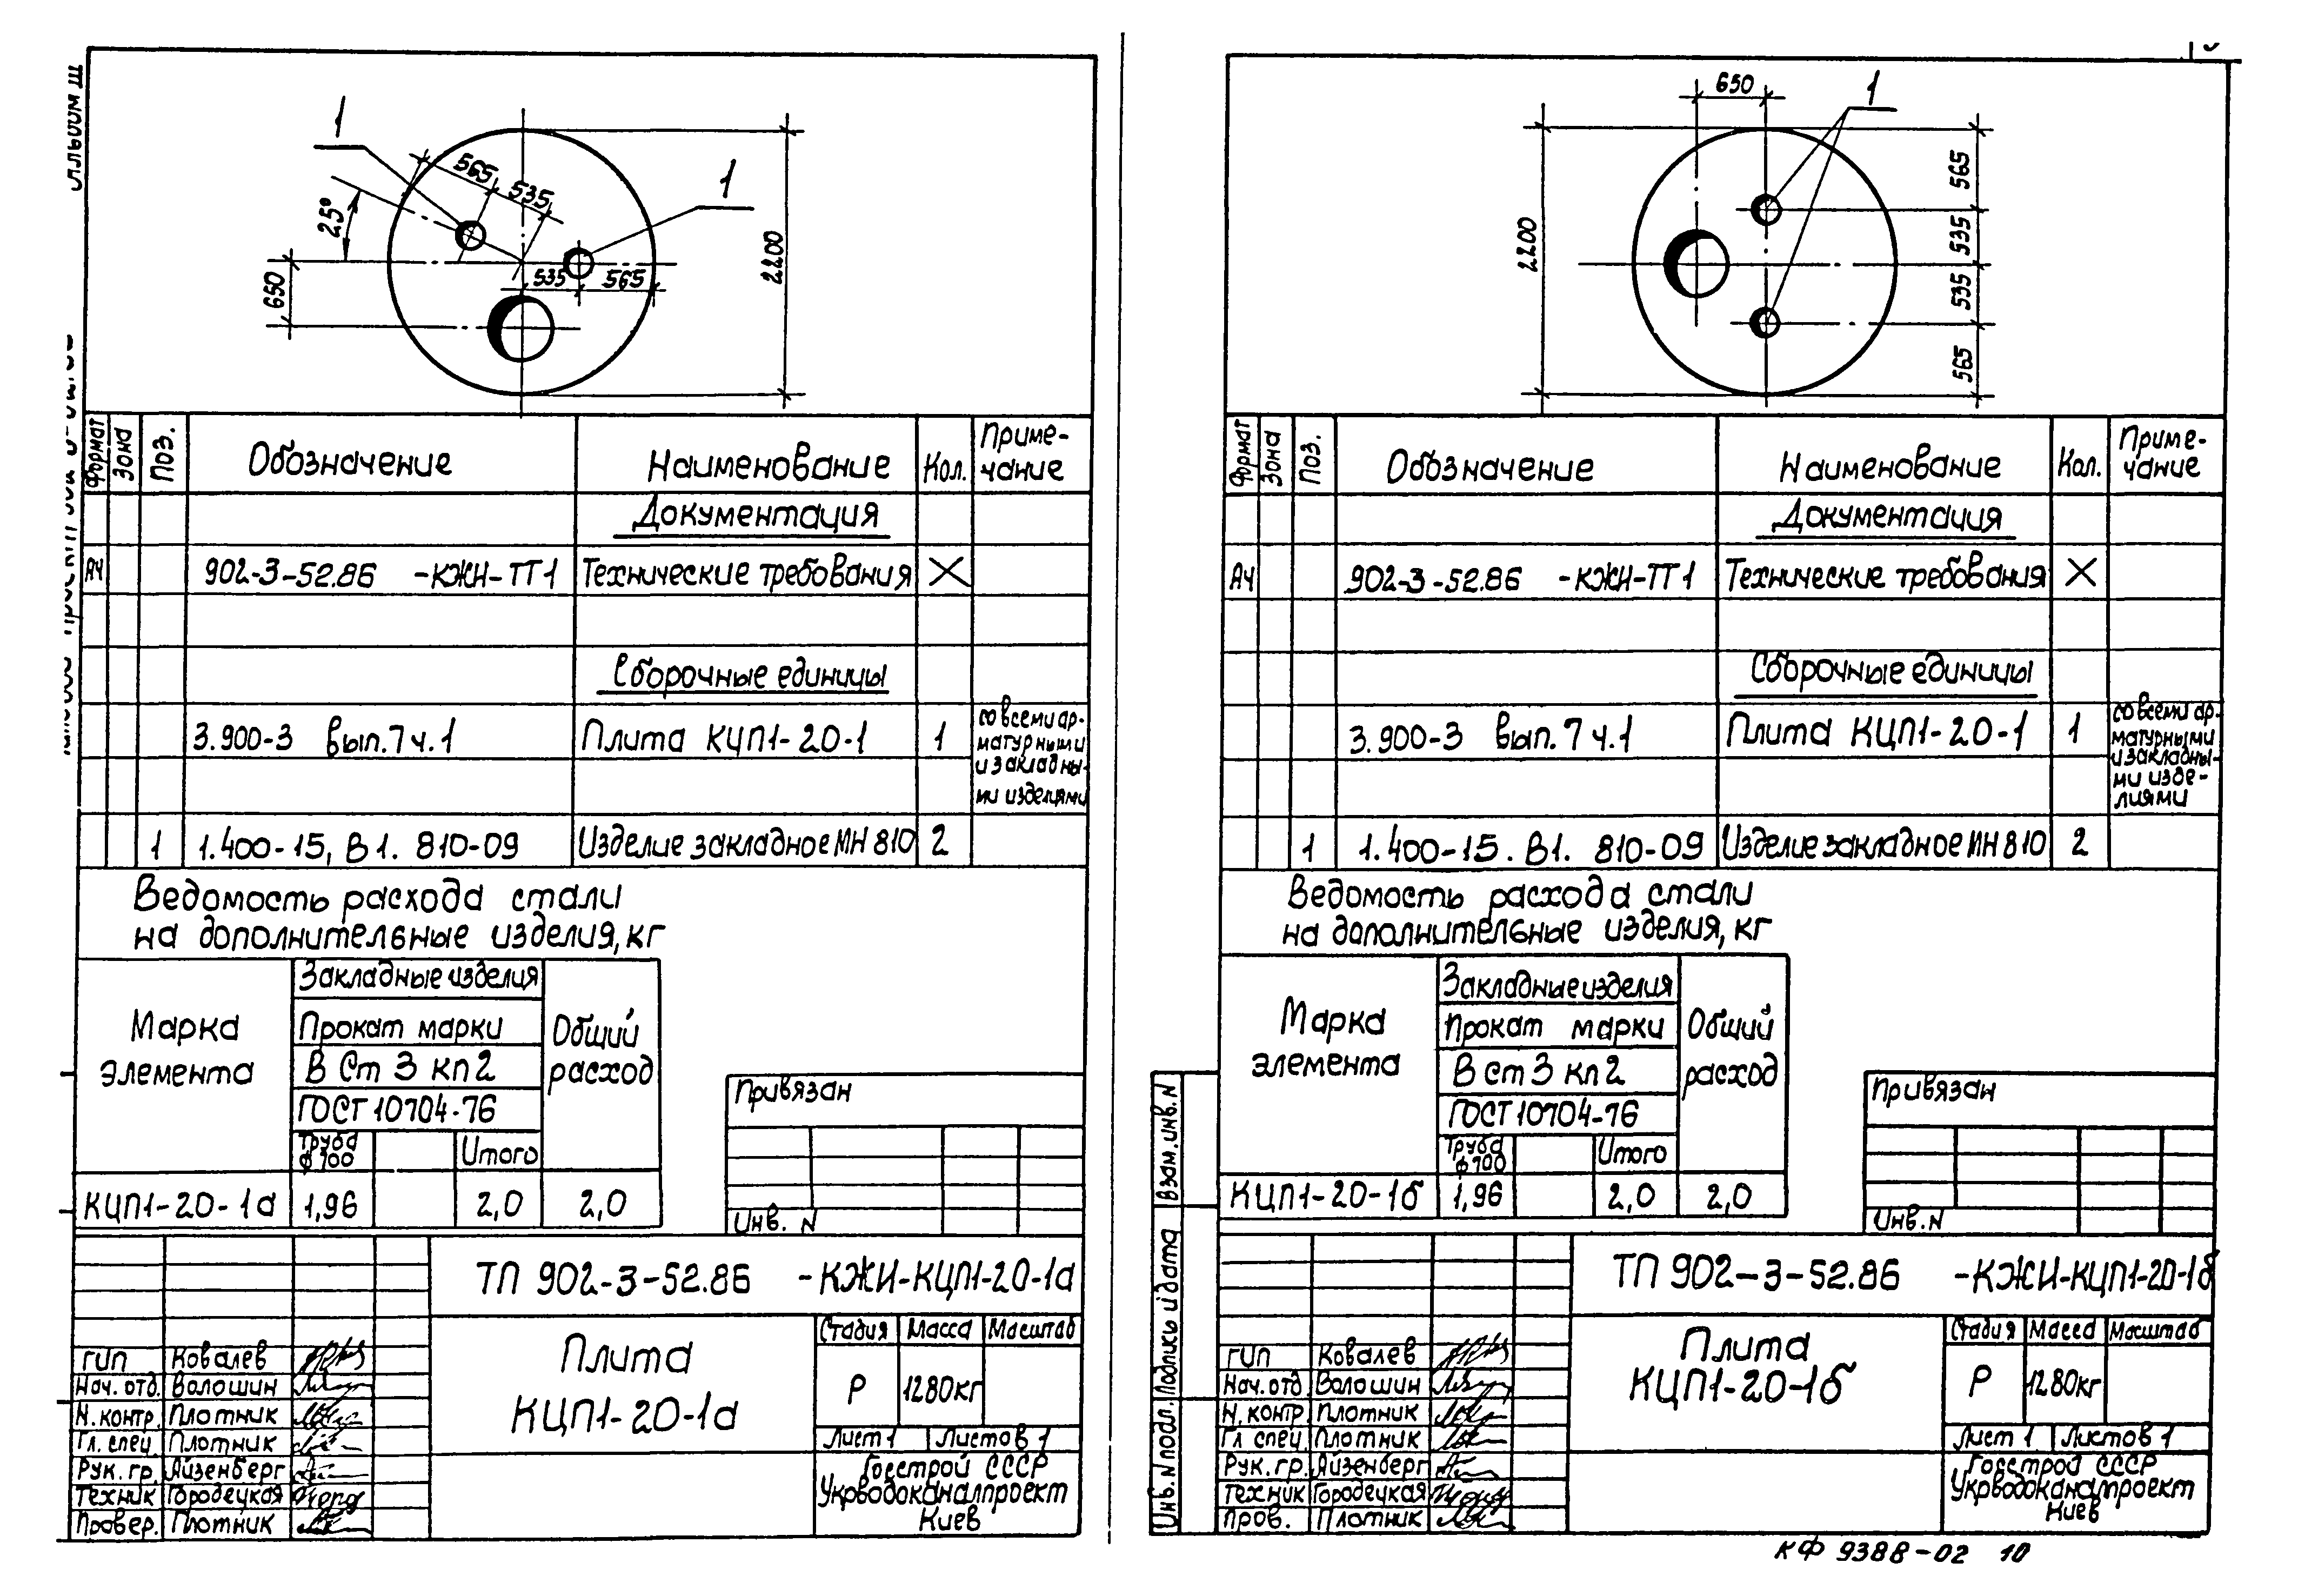 Альбом III
1
1
565
535
25°
650
535
565
2200
Формат
Зона
Поз.
Обозначение
Наименование
Кол.
Приме-
чание
Документация
А4 902-3-52.86 -КЖИ-ТТ1 Технические требования X
Сборочные единицы
3.900-3 вып.7 ч.1 Плита КЦП1-20-1 1
со всеми ар-
матурными
и закладны-
ми изделиями
1 1.400-15, В1. 810-09 Изделие закладное МН 810 2
Ведомость расхода стали
на дополнительные изделия, кг
Марка
элемента
Закладные изделия
Прокат марки
В Ст 3 кп 2
ГОСТ 10704-76
Труба
ф 100
Итого
Общий
расход
КЦП1-20-1а 1,96 2,0 2,0
Привязан
Инв. N
ТП 902-3-52.86 -КЖИ-КЦП1-20-1а
Плита
КЦП1-20-1а
Стадия Масса Масштаб
Р 1280кг
Лист 1 Листов 1
Госстрой СССР
Укрводоканалпроект
Киев
ГИП Ковалев
Нач. отд. Волошин
Н. контр. Плотник
Гл. спец. Плотник
Рук. гр. Айзенберг
Техник Городецкая
Провер. Плотник
650
1
2200
565
535
535
565
Формат
Зона
Поз.
Обозначение
Наименование
Кол.
Приме-
чание
Документация
А4 902-3-52.86 -КЖИ-ТТ1 Технические требования X
Сборочные единицы
3.900-3 вып. 7 ч.1 Плита КЦП1-20-1 1
со всеми ар-
матурными
и закладны-
ми изде-
лиями
1 1.400-15. В1. 810-09 Изделие закладное МН 810 2
Ведомость расхода стали
на дополнительные изделия, кг
Марка
элемента
Закладные изделия
Прокат марки
В ст 3 кп 2
ГОСТ 10704-76
Труба
ф 100
Итого
Общий
расход
КЦП1-20-1б 1,96 2,0 2,0
Привязан
Инв. N
Взам. инв. N
Подпись и дата
Инв. N подл.
ТП 902-3-52.86 -КЖИ-КЦП1-20-1б
Плита
КЦП1-20-1б
Стадия Масса Масштаб
Р 1280кг
Лист 1 Листов 1
Госстрой СССР
Укрводоканалпроект
Киев
ГИП Ковалев
Нач. отд Волошин
Н. контр. Плотник
Гл спец. Плотник
Рук. гр. Айзенберг
Техник Городецкая
Пров. Плотник
КФ 9388-02 10